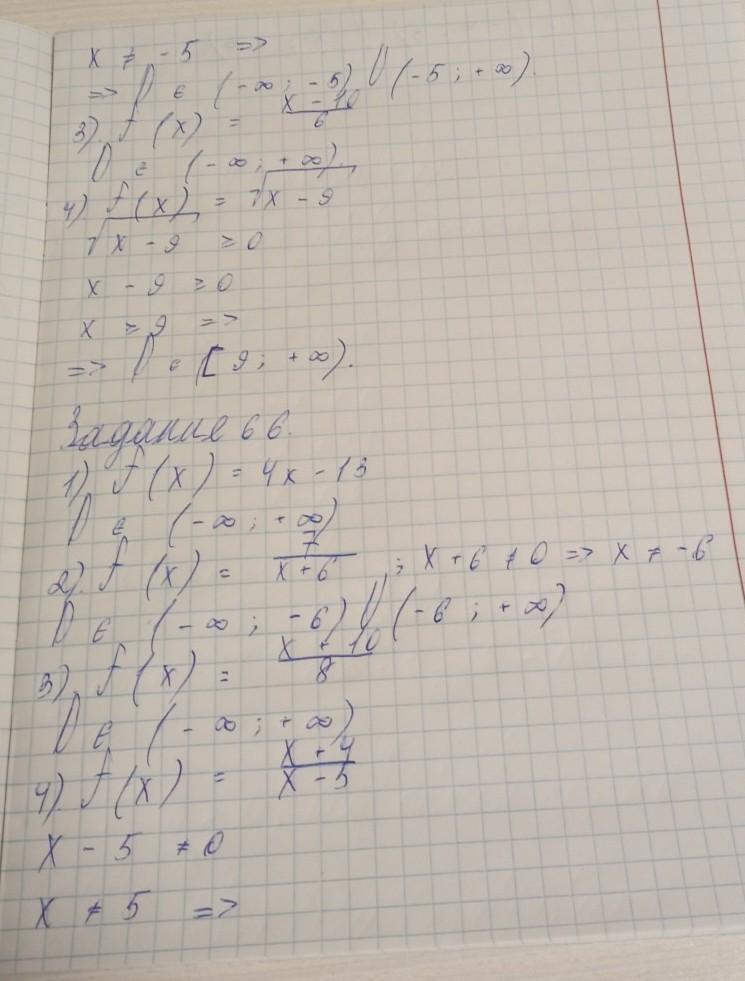 x ≠ -5 =>
=> D ∈ (-∞; -5) U (-5; +∞).
3). f(x) = x - 10 / 6
D ∈ (-∞; +∞).
4) f(x) = √x - 9
√x - 9 ≥ 0
x - 9 ≥ 0
x ≥ 9 =>
=> D ∈ [9; +∞).
Задание 66.
1). f(x) = 4x - 13
D ∈ (-∞; +∞)
2). f(x) = 7 / x + 6 ; x + 6 ≠ 0 => x ≠ -6
D ∈ (-∞; -6) U (-6; +∞)
3). f(x) = x + 10 / 8
D ∈ (-∞; +∞)
4). f(x) = x + 4 / x - 5
x - 5 ≠ 0
x ≠ 5 =>